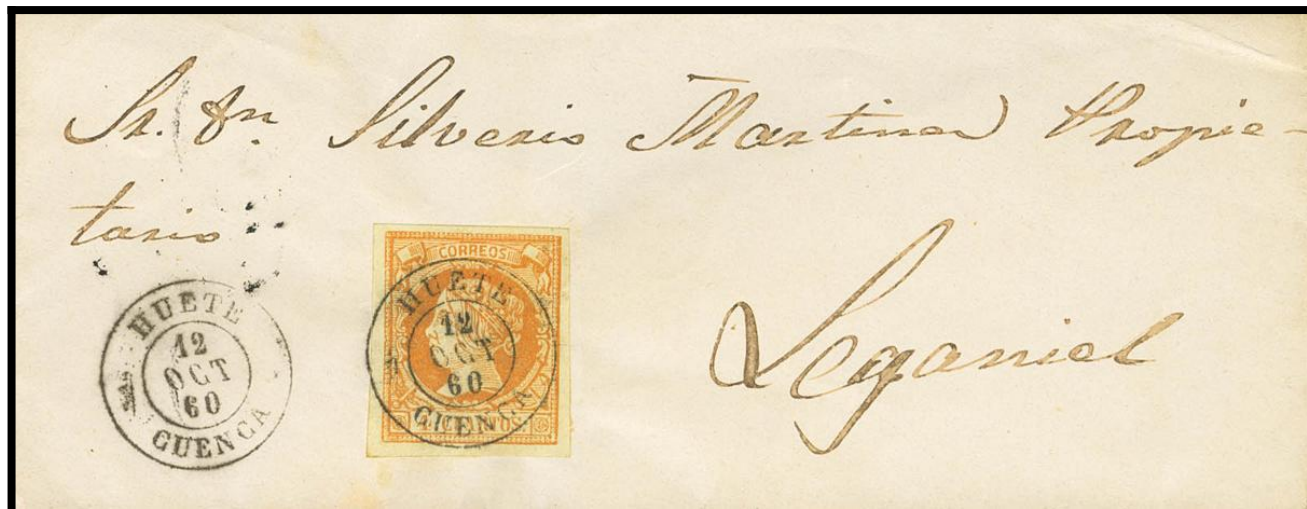 Sr. Dn. Silverio Martinez Propie-
tario
Leganiel
HUETE
12
OCT
60
CUENCA
CORREOS
HUETE
12
OCT
60
CUENCA